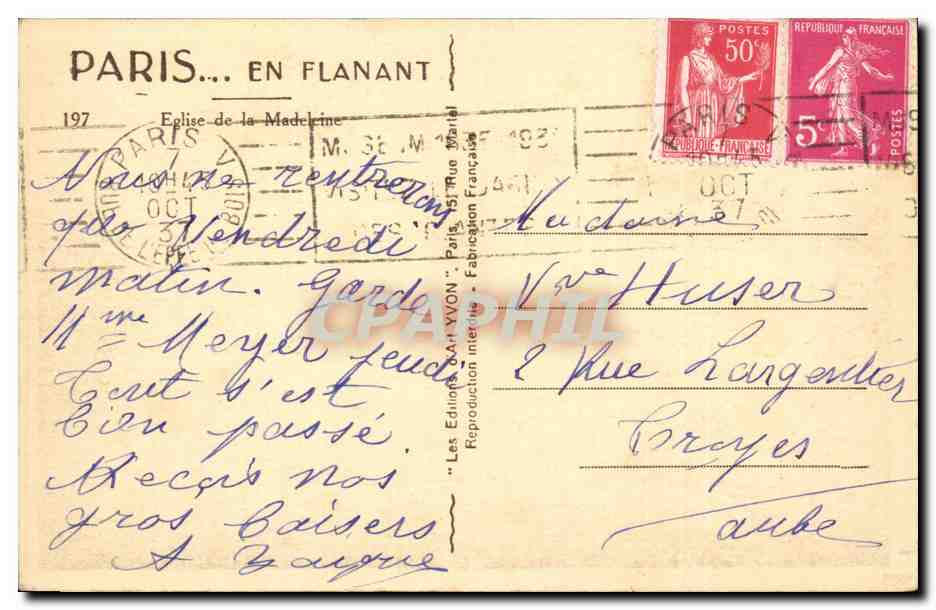 PARIS... EN FLANANT
197 Eglise de la Madeleine
PARIS V
7
OCT
37
Nous ne rentrerons
que Vendredi
matin. Garde
Mme Meyer jeudi
Tout s'est
bien passé
Reçois nos
gros baisers
"Les Editions d'Art YVON". Paris, 15, Rue Martel
Reproduction interdite - Fabrication Française
POSTES
50c
REPUBLIQUE-FRANÇAISE
REPUBLIQUE FRANÇAISE
5c
POSTES
PARIS
OCT
37
Madame
Vve Huser
2 Rue Largentier
Troyes
Aube
CPAPHIL